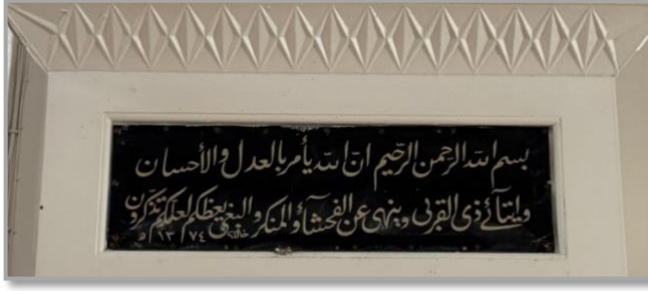 بسم الله الرحمن الرحيم ان الله يأمر بالعدل والأحسان
وايتآئ ذى القربى وينهى عن الفحشآء والمنكر والبغى يعظكم لعلكم تذكرون